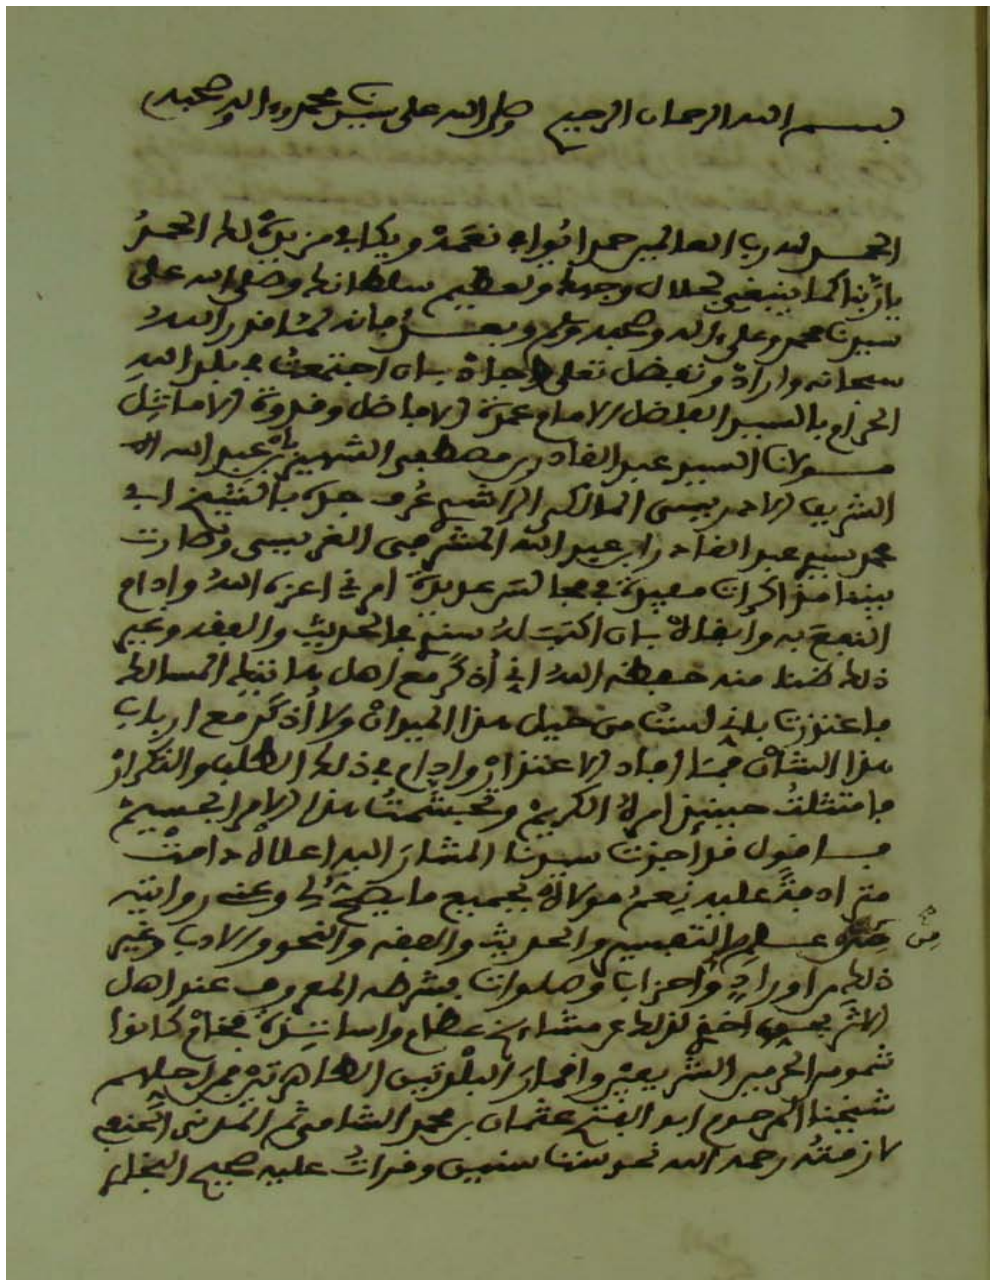 بسم الله الرحمان الرحيم وصلى الله على سيدنا محمد وءاله وصحبه
الحمد لله رب العالمين حمدا يوافي نعمه ويكافي مزيده لك الحمد
يا ربنا كما ينبغي لجلال وجهك وعظيم سلطانك وصلى الله على
سيدنا محمد وعلى ءاله وصحبه وسلم وبعد فانه لما قدر الله
سبحانه واراد وتفضل تعلى وجاد بان اجتمعت في بلد الله
الحرام بالسيد الفاضل الامام عمدة الافاضل وقدوة الاماثل
مولانا السيد عبد القادر بن مصطفى الشهير بابن عبد الله
الشريف الادريسي المالكي الراشدي عرف جده بالشيخ ابي
محمد سيدي عبد القادر ابن عبد الله المشرفي الغريسي وصارت
بيننا مذاكرات مفيدة في مجالس عديدة امرني اعزه الله وادام
النفع به وابقاه بان اكتب له سندي في الحديث والفقه وغير
ذلك ظنا منه حفظه الله اني اذكر مع اهل هاتيك المسالك
فاعتذرت باني لست من خيل هذا الميدان ولا اذكر مع ارباب
هذا الشان فما افاد الاعتذار وادام في ذلك الطلب والتكرار
فامتثلت حينئذ امره الكريم وتجشمت هذا الامر الجسيم
فاقول قد اجزت سيدنا المشار اليه اعلاه دامت
مترادفة عليه نعم مولاه بجميع ما يصح لي وعني روايته
من علم التفسير والحديث والفقه والنحو والادب وغير
ذلك من اوراد واحزاب وصلوات بشرطه المعروف عند اهل
الاثر بحسب اخذي لذلك عن مشايخ عظام واساتذة فخام كانوا
شموس الحرمين الشريفين واقمار البلدتين الطاهرتين فمن اجلهم
شيخنا المرحوم ابو الفتح عثمان بن محمد الشامي ثم المدني الحنفي
لازمته رحمه الله نحو ستة سنين وقرات عليه صحيح البخاري